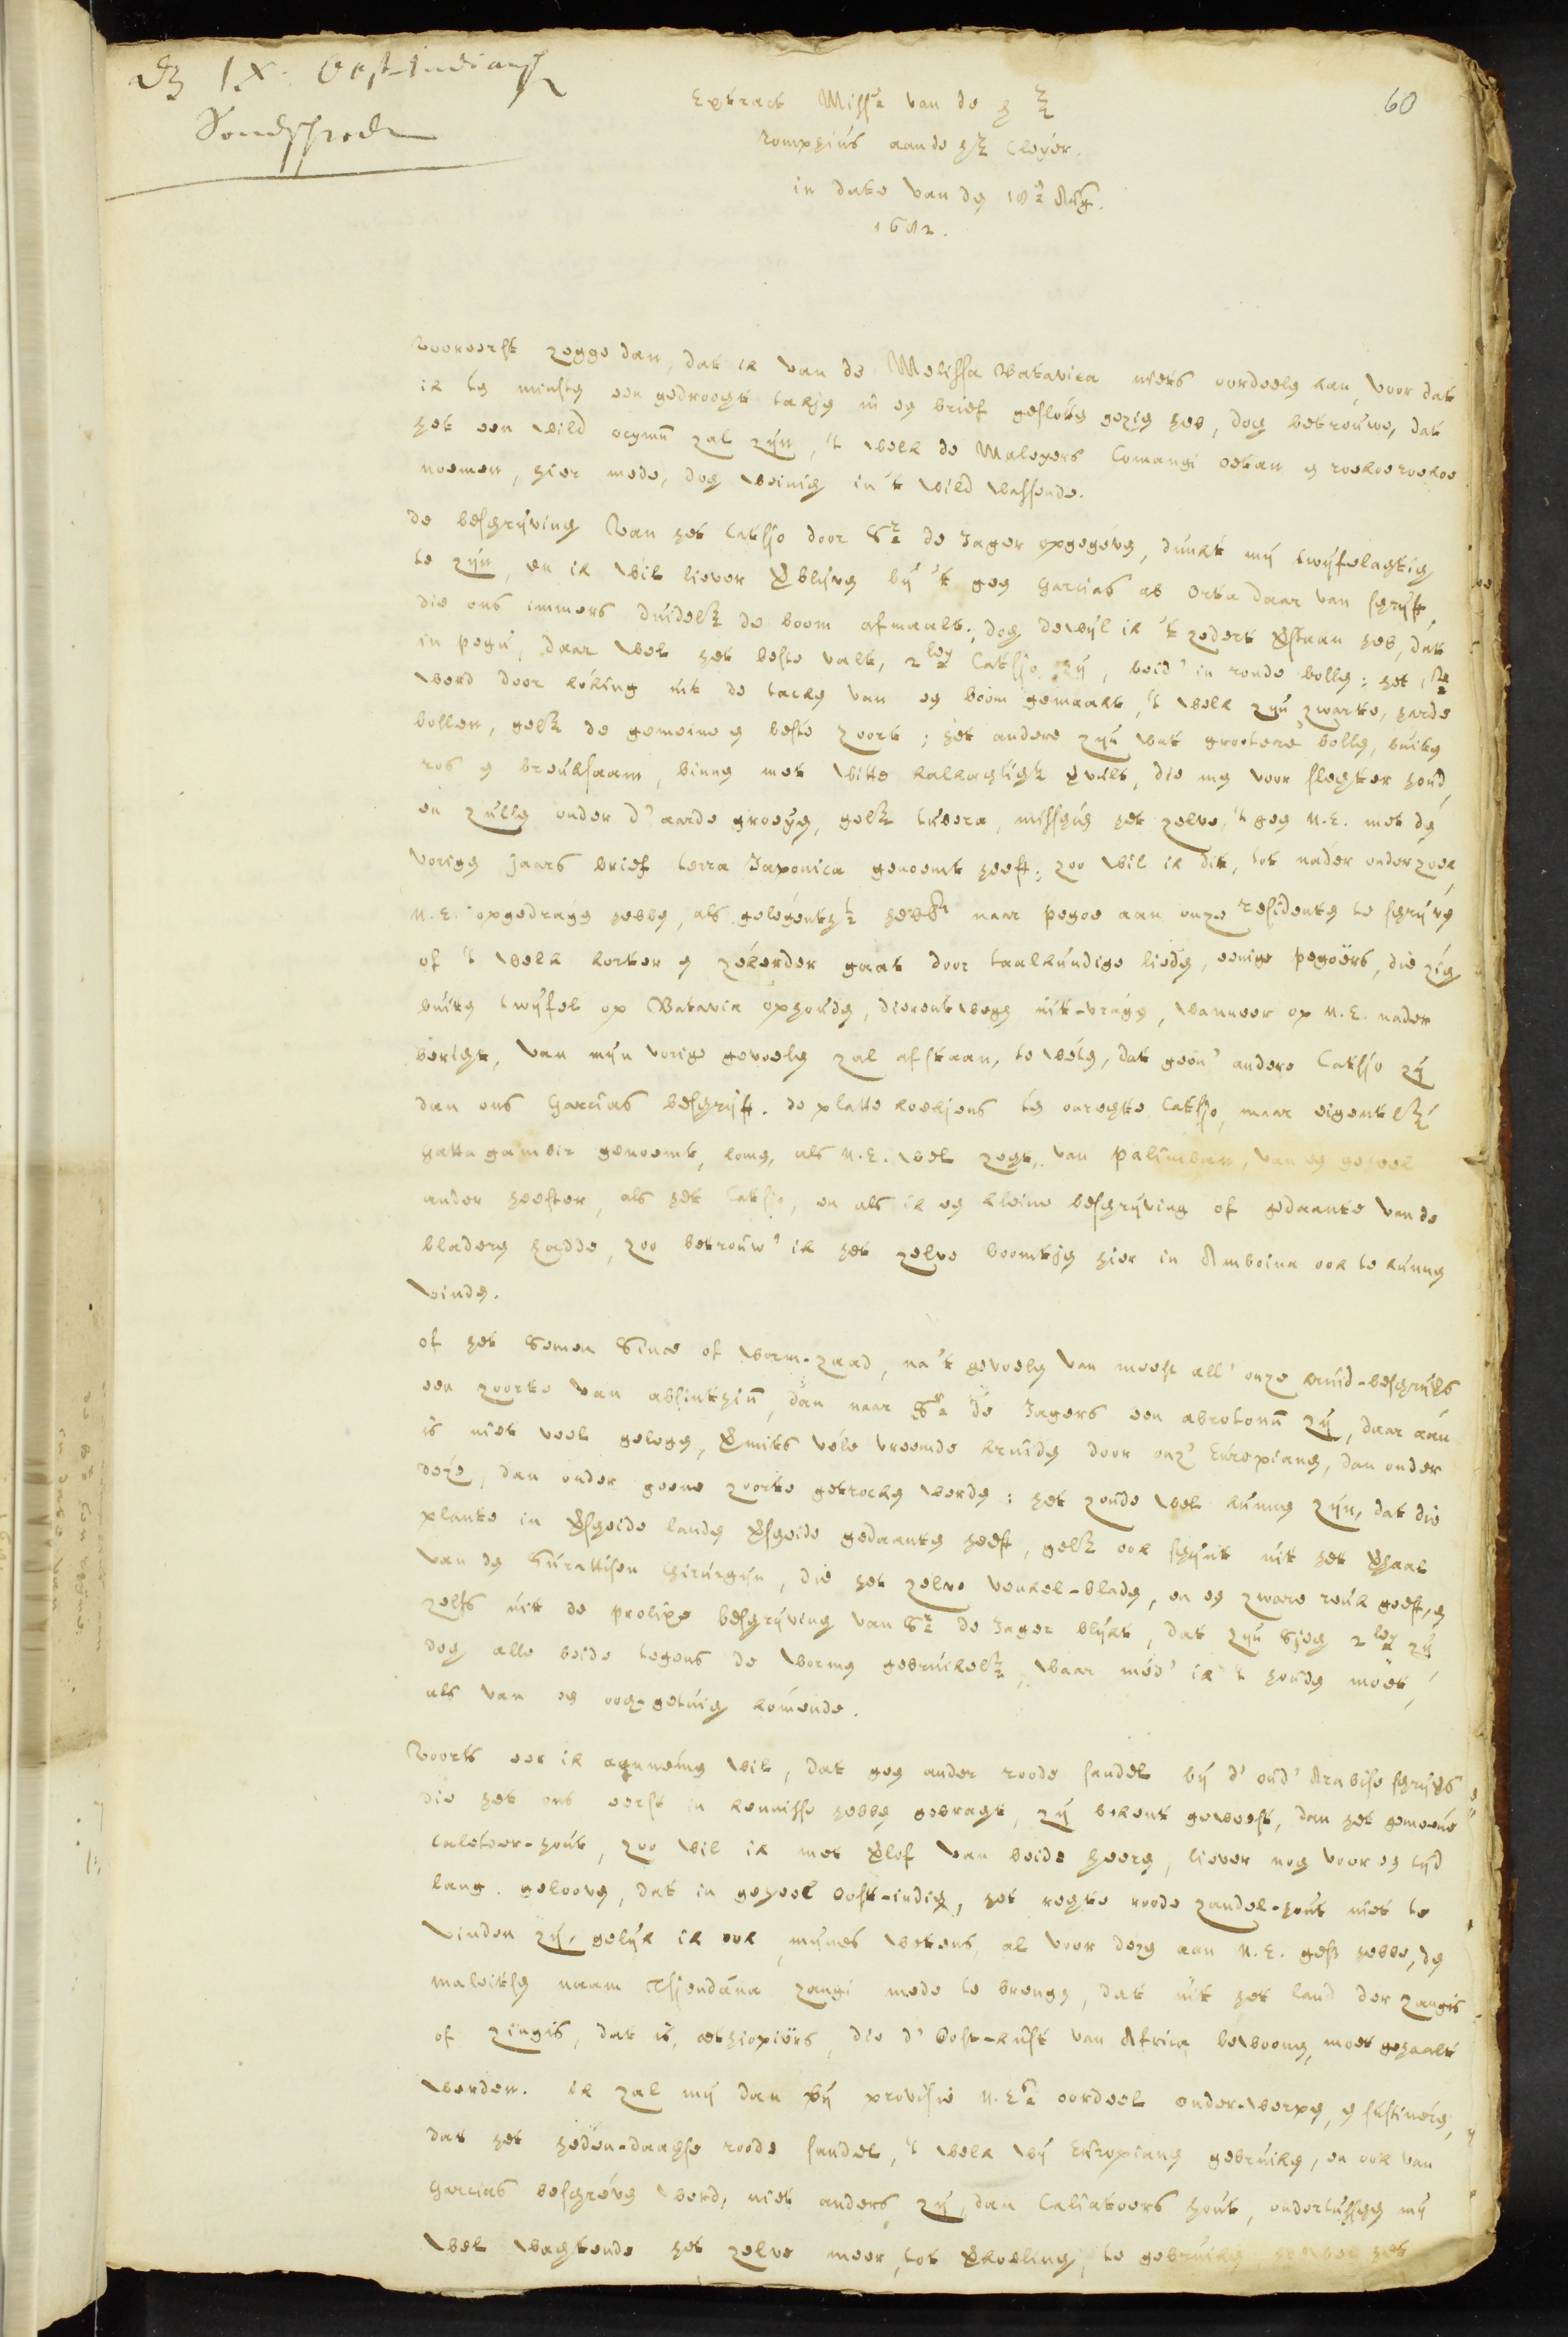 IX. Oest-Indiansch
Sendschreiben
60
Extract Miss.e van de h.r
Rumphius aan de h.r Cleyer.
in dato van de 18.e Aug.
1682.
Vooreerst zegge dan, dat ik van de Melissa Batavica niets oordeelen kan, voor dat
ik ten minsten een gedroogt takjen in een brief gesloten gezien heb, dog betrouwe, dat
het een wild ocymũ zal zijn, 't welk de Maleyers Comangi oetan en roekoe roekoe
noemen, hier mede, dog weinig in 't wild wassende.
de beschrijving van het Catsjo door S.r de Jager opgegeven, dunkt mij twijfelagtig
te zijn, en ik wil liever verblijven bij 't geen Garcias ab Orta daar van schrijft,
die ons immers duidel.k de boom afmaalt; dog dewijl ik 't zedert verstaan heb, dat
in pegu, daar wel het beste valt, 2.ley Catsjo zij, beid' in ronde bollen: het 1.ste
werd door koking uit de tacken van een boom gemaakt, 't welk zijn zwarte, harde
bollen, gel.k de gemeine en beste zoort; het andere zijn wat grootere bollen, buiten
ros en breuksaam, binnen met witte kalkagtigh.t vervult, die men voor slegter houd,
en zullen onder d' aarde groeyen, gel.k tubera, misschien het zelve, 't geen U.E. met den
vorigen jaars brief terra Japonica genoemt heeft; zoo wil ik dit, tot nader onderzoek,
U.E. opgedragen hebben, als gelegenth.t hebb.de naar pegoe aan onze residenten te schrijven
of 't welk korter en zekerder gaat door taalkundige lieden, eenige pegoërs, die zig
buiten twijfel op Batavia ophouden, dierentwegen uit-vragen, wanneer op U.E. nader
berigt, van mijn vorige gevoelen zal afstaan, te weten, dat geen' andere Catsjo zij
dan ons Garcias beschrijft. de platte koekjens ten onregte Catsjo, maar eigentl.k
Gatta gambir genoemt, komen, als U.E. wel zegt, van Palimban, van een geheel
ander heester, als het Catsjo, en als ik een kleine beschrijving of gedaante van de
bladeren hadde, zoo betrouw' ik het zelve boomtjen hier in Amboina ook te kunnen
vinden.
of het Semen Sinæ of worm-zaad, na 't gevoelen van meest all' onze cruid-beschrijvers
een zoorte van absinthiũ, dan naar S.r de Jagers een abrotonũ zij, daar aan
is niet veel gelegen, vermits vele vreemde kruiden door onz' Europianen, dan onder
deze, dan onder geene zoorte getrocken werden: het zoude wel kunnen zijn, dat die
plante in verscheide landen verscheide gedaanten heeft, gel.k ook schijnt uit het verhaal
van den Surattisen Chirurgijn, die het zelve venkel-bladen, en een zware reuk geeft, en
zelfs uit de prolixe beschrijving van S.r de Jager blijkt, dat zijn Sjeh 2.ley zij
dog alle beide tegens de wormen gebruikel.k, waar med' ik 't houden moet,
als van een oog-getuig komende.
Voorts eer ik aannemen wil, dat geen ander roode sandel bij d' oud' Arabise schrijvers
die het ons eerst in kennisse hebben gebragt, zij bekent geweest, dan het gemeene
Caletoer-hout, zoo wil ik met verlof van beide heeren, liever nog voor een tijd
lang. gelooven, dat in geheel Oost-indien, het regte roode zandel-hout niet te
vinden zij, gelijk ik ook, mijnes wetens, al voor dezen aan U.E. geschr. hebbe, den
maleitsen naam Tsjendana zangi mede te brengen, dat uit het land der zangis
of zingis, dat is, æthiopiërs, die d' Oost-kust van Africa bewoonen, moet gehaalt
werden. ik zal mij dan bij provisie U.E.s oordeel onder-werpen, en sustineren,
dat het heden-daagse roode sandel, 't welk wij Europianen gebruiken, en ook van
Garcias beschreven werd, niet anders zij, dan Caliatoers hout, ondertusschen mij
wel wagtende het zelve meer, tot verkoeling, te gebruiken, hoewel het